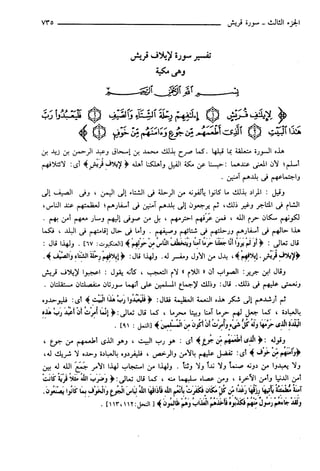 الجزء الثالث - سورة قريش ٧٣٥
تفسير سورة لإيلاف قريش
وهى مكية
بسم الله الرحمن الرحيم
﴿ لِإِيلَافِ قُرَيْشٍ ۝ إِيلَافِهِمْ رِحْلَةَ الشِّتَاءِ وَالصَّيْفِ ۝ فَلْيَعْبُدُوا رَبَّ
هَذَا الْبَيْتِ ۝ الَّذِي أَطْعَمَهُمْ مِنْ جُوعٍ وَآمَنَهُمْ مِنْ خَوْفٍ ۝ ﴾
هذه السورة متعلقة بما قبلها . كما صرح بذلك محمد بن إسحاق وعبد الرحمن بن زيد بن
أسلم؛ لأن المعنى عندهما : حبسنا عن مكة الفيل وأهلكنا أهله ﴿ لإيلاف قُرَيْش ﴾ أى : لائتلافهم
واجتماعهم فى بلدهم آمنين .
وقيل : المراد بذلك ما كانوا يألفونه من الرحلة فى الشتاء إلى اليمن ، وفى الصيف إلى
الشام فى المتاجر وغير ذلك، ثم يرجعون إلى بلدهم آمنين فى أسفارهم؛ لعظمتهم عند الناس،
لكونهم سكان حرم الله ، فمن عرفهم احترمهم ، بل من صوفى إليهم وسار معهم أمن بهم .
هذا حالهم فى أسفارهم ورحلتهم فى شتائهم وصيفهم . وأما فى حال إقامتهم فى البلد ، فكما
قال تعالى : ﴿ أَوَ لَمْ يَرَوْا أَنَّا جَعَلْنَا حَرَمًا آمِنًا وَيُتَخَطَّفُ النَّاسُ مِنْ حَوْلِهِمْ ﴾ [العنكبوت : ٦٧] . ولهذا قال :
﴿ لإيلاف قُرَيْش . إيلافهم ﴾، بدل من الأول ومفسر له. ولهذا قال: ﴿ إيلافهم رِحْلَةَ الشِّتَاءِ وَالصَّيْفِ ﴾.
وقال ابن جرير: الصواب أن « اللام » لام التعجب ، كأنه يقول : اعجبوا لإيلاف قريش
ونعمتى عليهم فى ذلك. قال: وذلك لإجماع المسلمين على أنهما سورتان منفصلتان مستقلتان .
ثم أرشدهم إلى شكر هذه النعمة العظيمة فقال: ﴿ فَلْيَعْبُدُوا رَبَّ هَذَا الْبَيْتِ ﴾ أى: فليوحدوه
بالعبادة ، كما جعل لهم حرما آمنا وبيتا محرما ، كما قال تعالى : ﴿ إِنَّمَا أُمِرْتُ أَنْ أَعْبُدَ رَبَّ هَذِهِ
الْبَلْدَةِ الَّذِي حَرَّمَهَا وَلَهُ كُلُّ شَيْءٍ وَأُمِرْتُ أَنْ أَكُونَ مِنَ الْمُسْلِمِينَ ﴾ [النمل : ٩١] .
وقوله : ﴿ الَّذِي أَطْعَمَهُمْ مِنْ جُوعٍ ﴾ أى : هو رب البيت ، وهو الذى أطعمهم من جوع ،
﴿ وَآمَنَهُمْ مِنْ خَوْفٍ ﴾ أى: تفضل عليهم بالأمن والرخص ، فليفردوه بالعبادة وحده لا شريك له،
ولا يعبدوا من دونه صنما ولا ندا ولا وثنا . ولهذا من استجاب لهذا الأمر جمع الله له بين
أمن الدنيا وأمن الآخرة ، ومن عصاه سلبهما منه ، كما قال تعالى : ﴿ وَضَرَبَ اللَّهُ مَثَلًا قَرْيَةً كَانَتْ
آمِنَةً مُطْمَئِنَّةً يَأْتِيهَا رِزْقُهَا رَغَدًا مِنْ كُلِّ مَكَانٍ فَكَفَرَتْ بِأَنْعُمِ اللَّهِ فَأَذَاقَهَا اللَّهُ لِبَاسَ الْجُوعِ وَالْخَوْفِ بِمَا كَانُوا يَصْنَعُونَ .
وَلَقَدْ جَاءَهُمْ رَسُولٌ مِنْهُمْ فَكَذَّبُوهُ فَأَخَذَهُمُ الْعَذَابُ وَهُمْ ظَالِمُونَ ﴾ [النحل: ١١٢، ١١٣] .